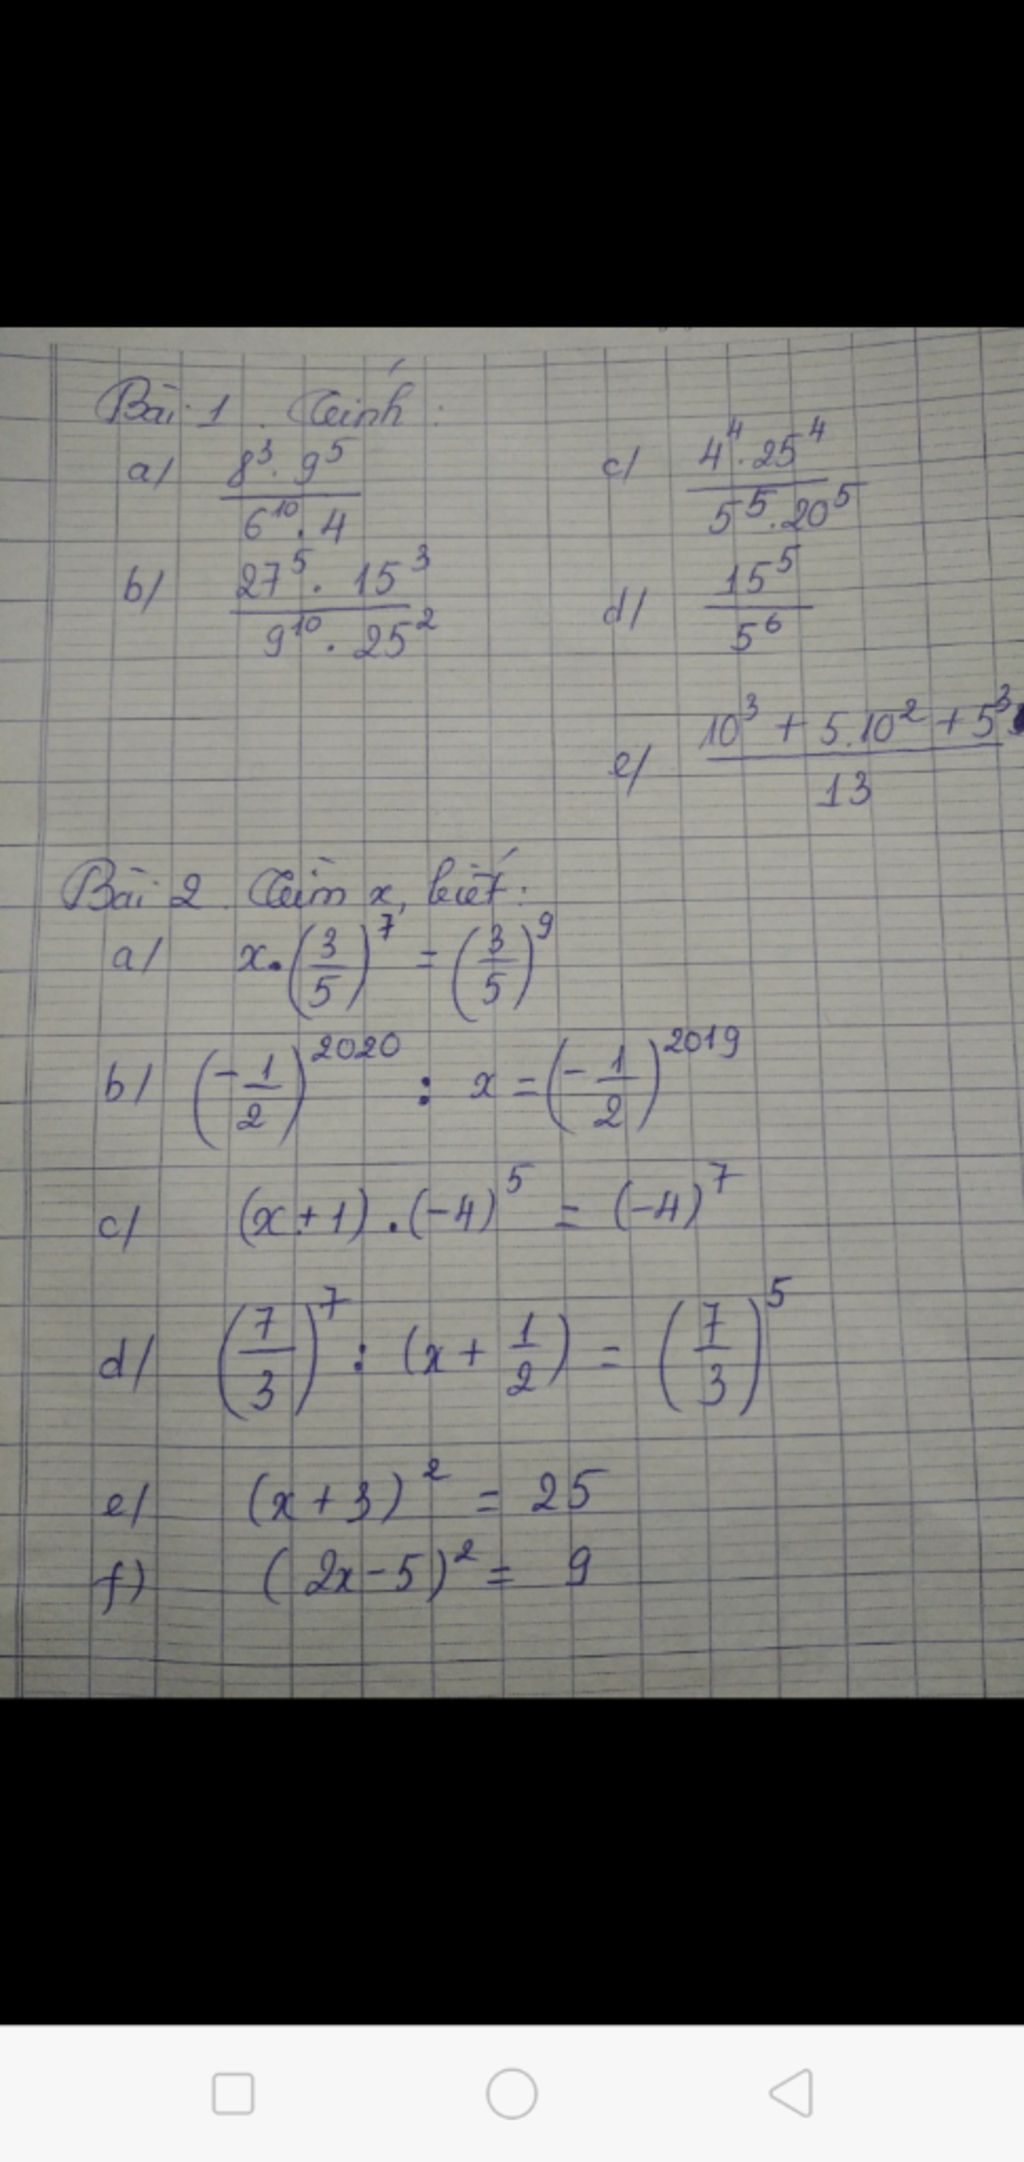 Bài 1. Tính:
a/ 8³. 9⁵ / 6¹⁰. 4
b/ 27⁵. 15³ / 9¹⁰. 25²
c/ 4⁴. 25⁴ / 5⁵. 20⁵
d/ 15⁵ / 5⁶
e/ 10³ + 5.10² + 5³ / 13
Bài 2. Tìm x, biết:
a/ x.(3/5)⁷ = (3/5)⁹
b/ (-1/2)²⁰²⁰ : x = (-1/2)²⁰¹⁹
c/ (x+1).(-4)⁵ = (-4)⁷
d/ (7/3)⁷ : (x + 1/2) = (7/3)⁵
e/ (x+3)² = 25
f) (2x-5)² = 9